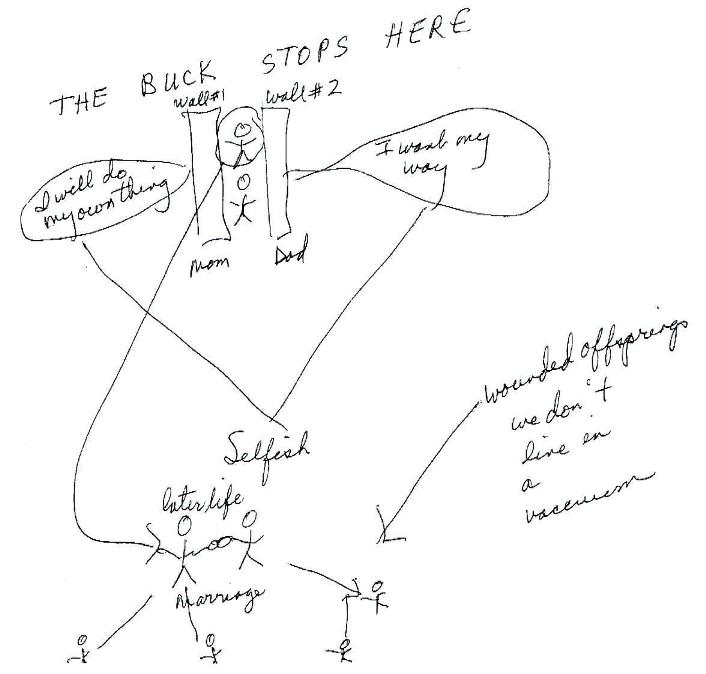 THE BUCK STOPS HERE
Wall #1
Wall #2
I will do
my own thing
I want my
way
Mom
Dad
Selfish
later life
Marriage
wounded offsprings
we don't
live in
a
vacewem